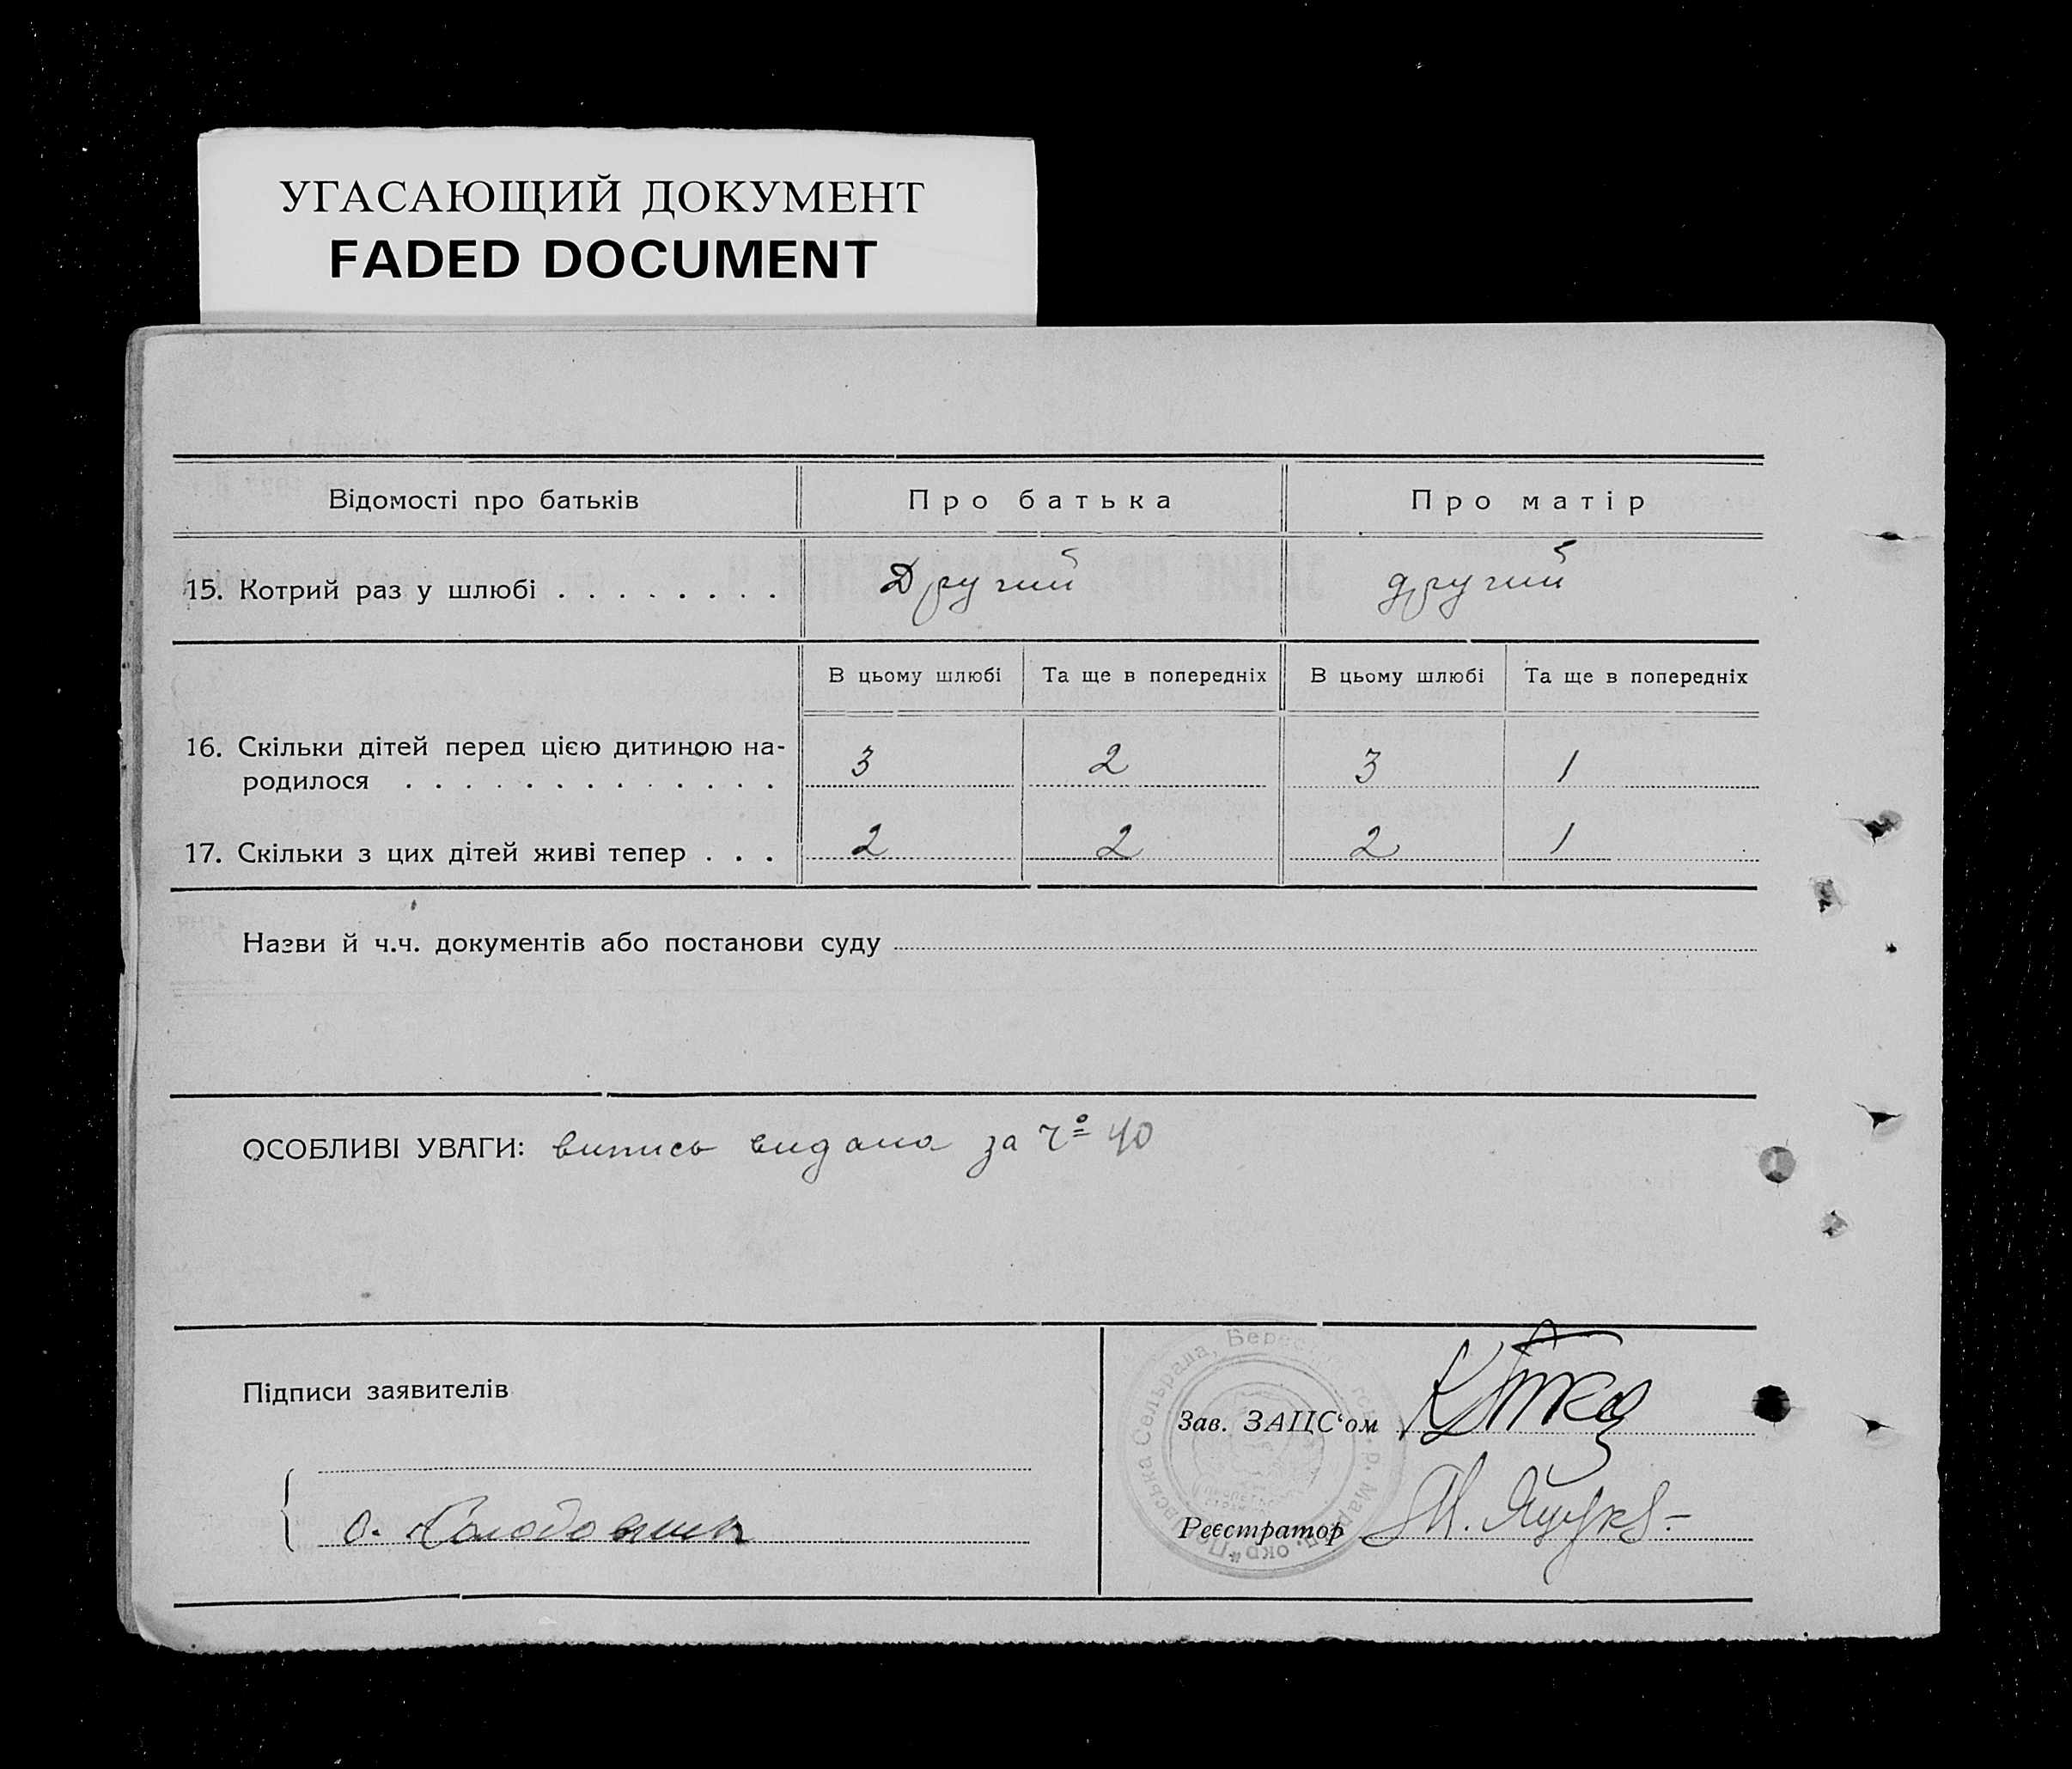 УГАСАЮЩИЙ ДОКУМЕНТ
FADED DOCUMENT
Відомості про батьків
Про батька
Про матір
15. Котрий раз у шлюбі
Другий
другий
В цьому шлюбі
Та ще в попередніх
В цьому шлюбі
Та ще в попередніх
16. Скільки дітей перед цією дитиною на-
родилося
3
2
3
1
17. Скільки з цих дітей живі тепер . . .
2
2
2
1
Назви й ч.ч. документів або постанови суду
ОСОБЛИВІ УВАГИ: випись видана за Ч° 40
Підписи заявителів
Зав. ЗАЦС‘ом
Реєстратор
Сельрада,